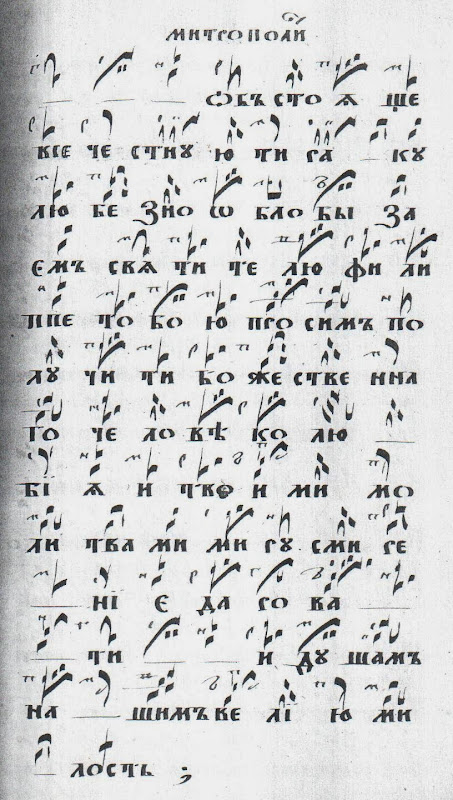 МИТРОПОЛИ
ѠБЪ СТО Ѧ ЩЕ
ВСЕ ЧЕ СТНУ Ю ТИ РА КУ
ЛЮ БЕ ЗНО Ѡ БЛО БЫ ЗА
ЕМЪ СВѦ ТИ ТЕ ЛЮ ФИ ЛИ
ППЕ ТО БО Ю ПРО СИМЪ ПО
ЛУ ЧИ ТИ БО ЖЕ СТВЕ ННА
ГО ЧЕ ЛО ВѢ КО ЛЮ
БЇ Ѧ И ТВО И МИ МО
ЛИ ТВА МИ МИ РУ СМИ РЕ
НЇ Е ДА РО ВА
ТИ И ДУ ШАМЪ
НА ШИМЪ ВЕ ЛЇ Ю МИ
ЛОСТЬ ;